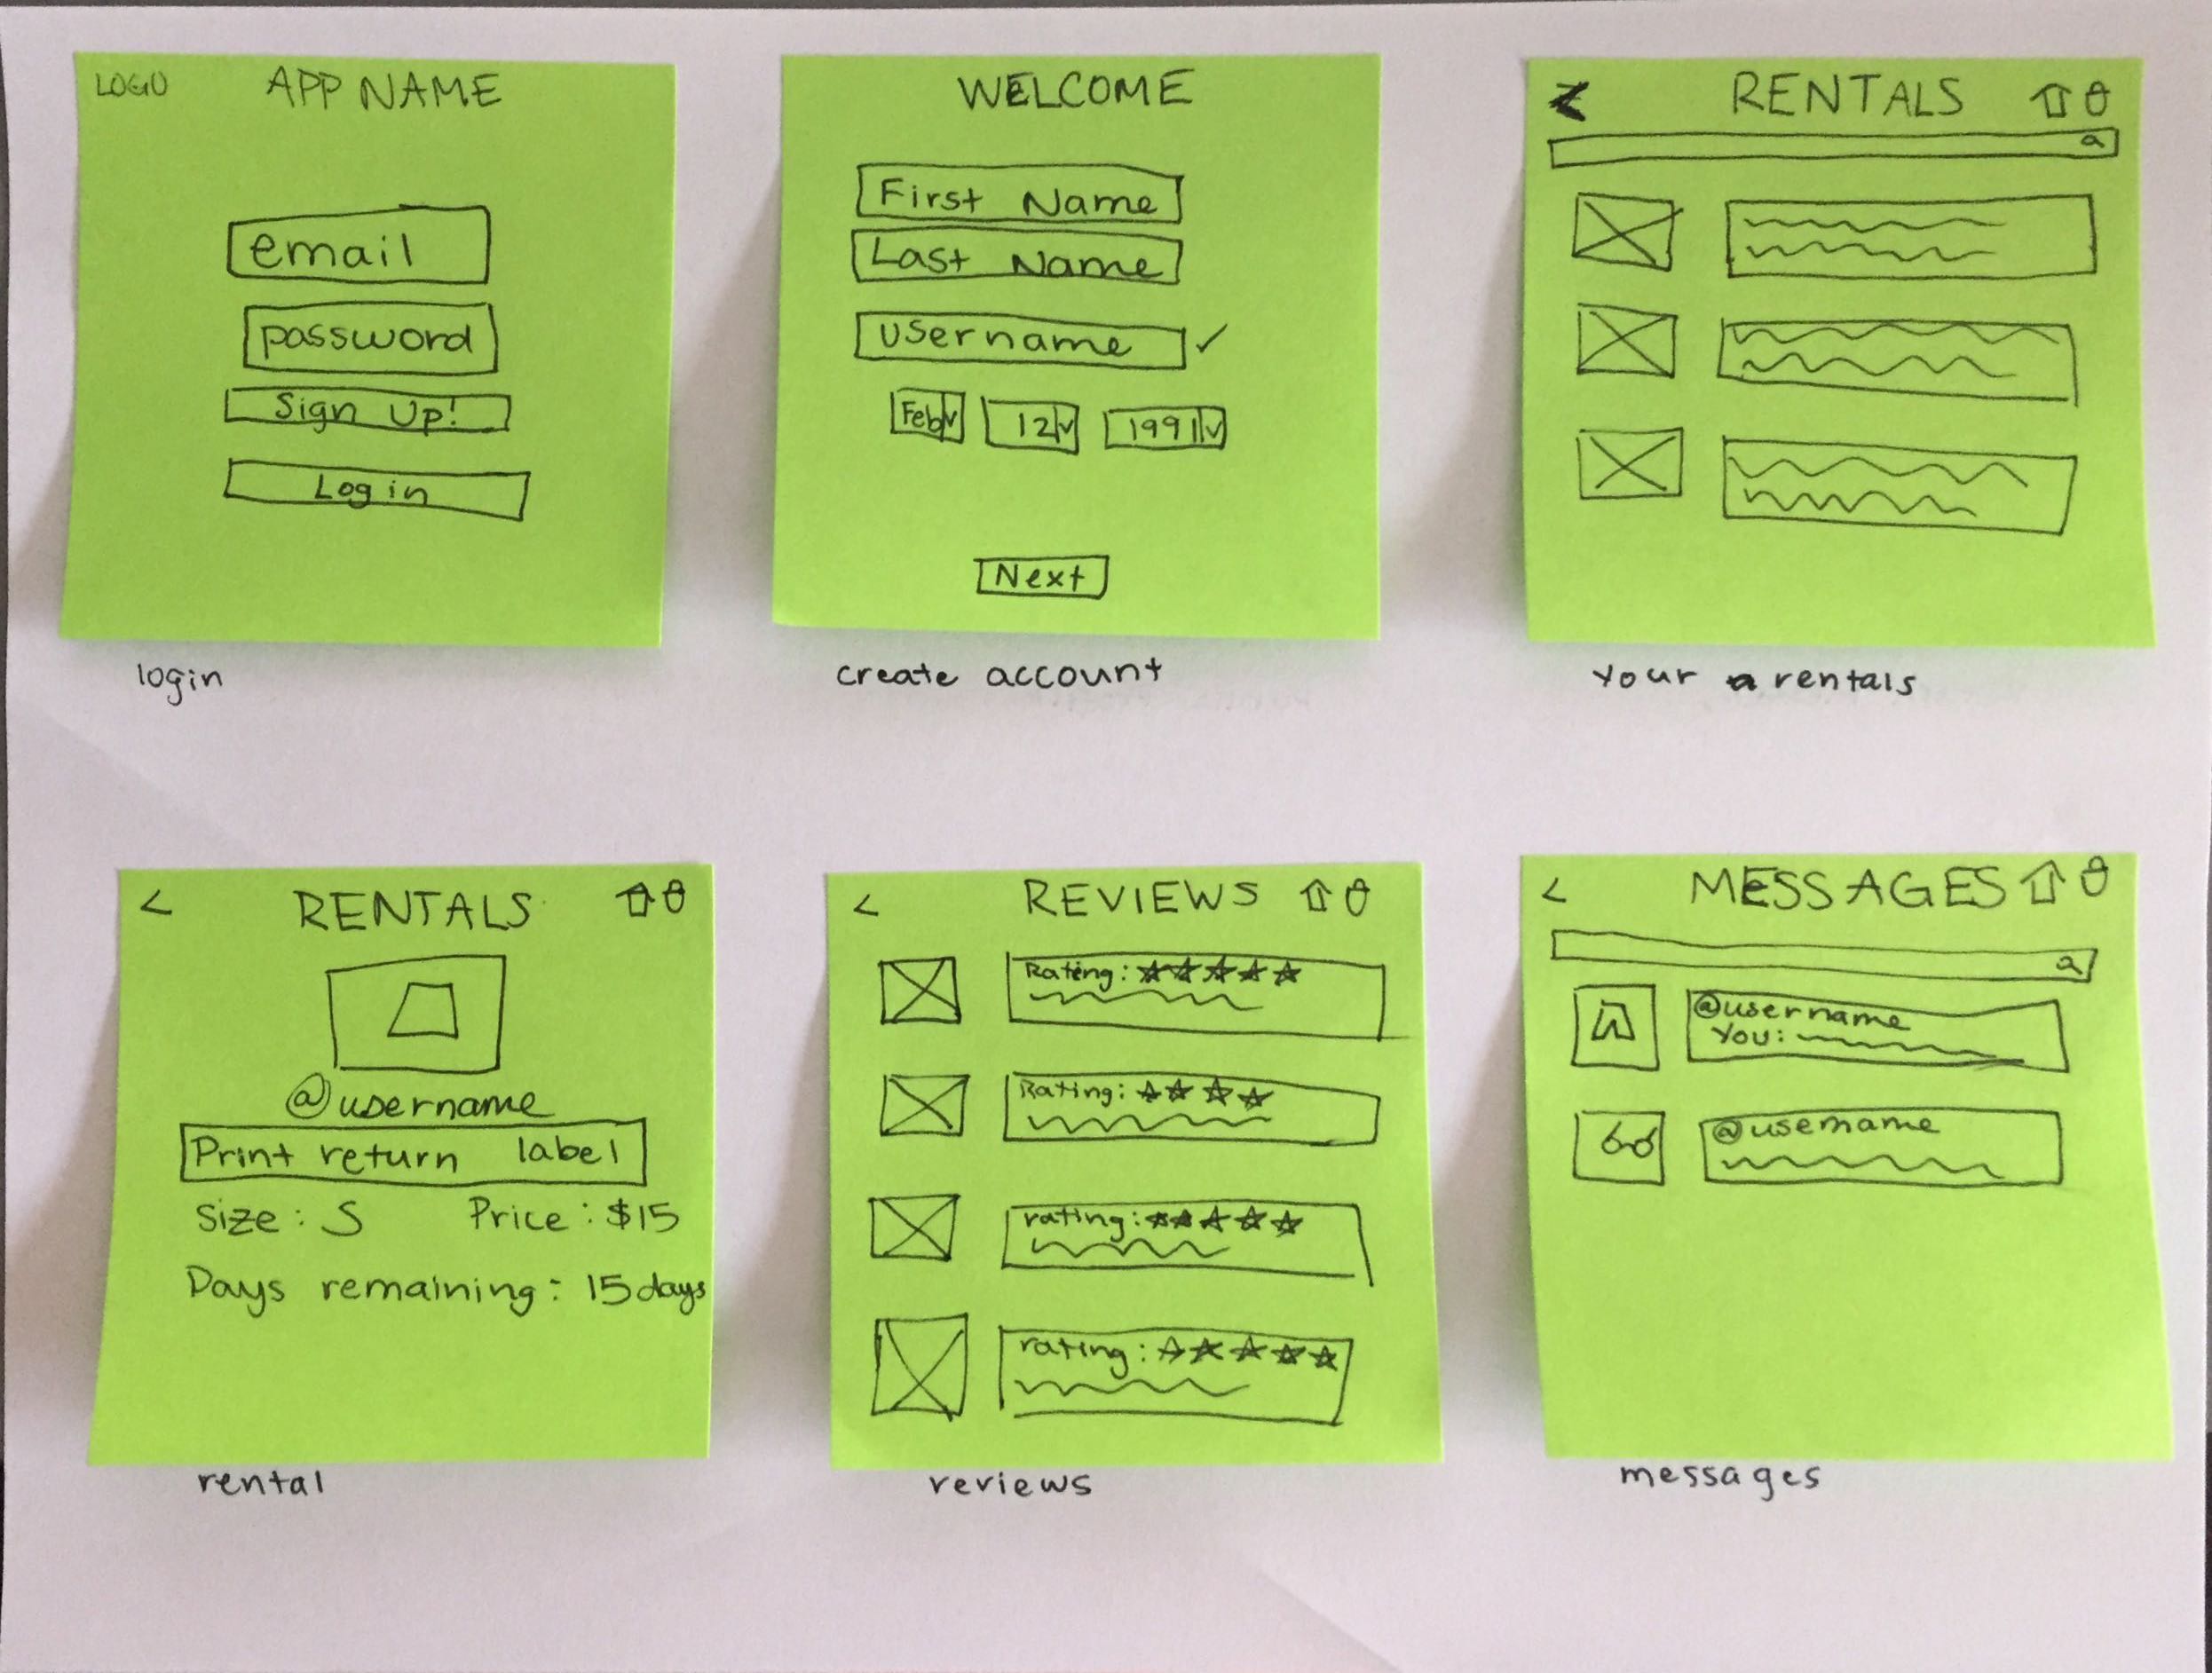 LOGO APP NAME
email
password
Sign Up!
Login
login
WELCOME
First Name
Last Name
username
Feb 12 1991
Next
create account
RENTALS
your rentals
< RENTALS
@username
Print return label
Size: S Price: $15
Days remaining: 15 days
rental
< REVIEWS
Rating:
Rating:
rating:
rating:
reviews
< MESSAGES
@username
You:
@username
messages